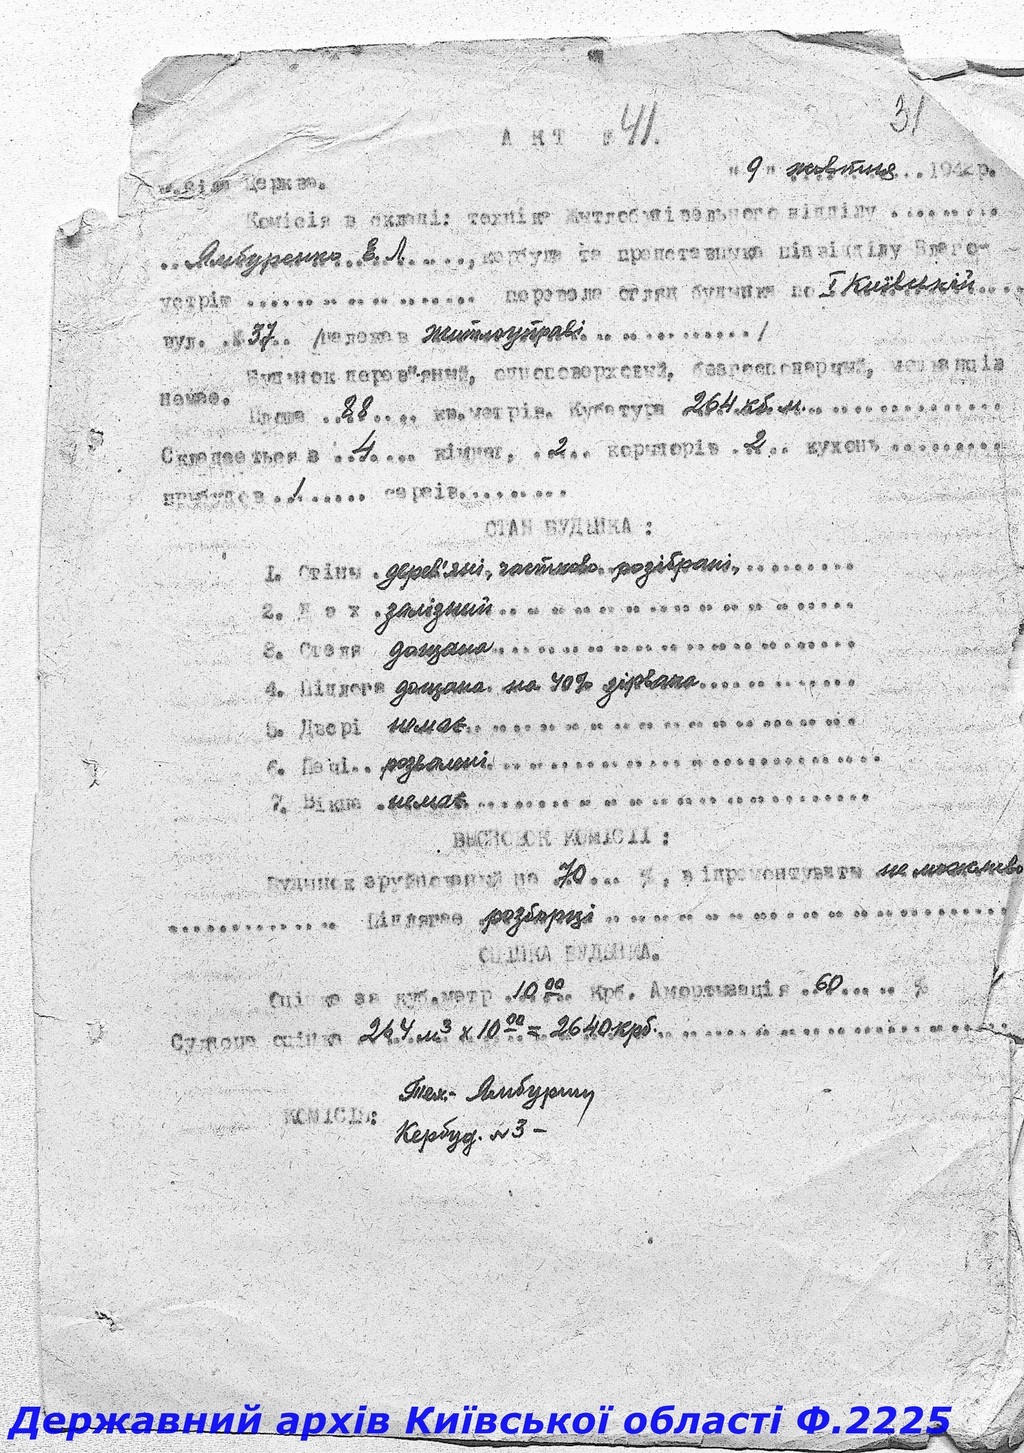 31
АКТ № 41.
м.Біла Церква. "9" жовтня 1942р.
Комісія в складі: техніка Житлобудівельного відділу ..........
..Ямбуренко Е.Л......, кербуда та представника підвідділу Благо-
устрія .................. перевела огляд будинка по I Київській
вул. №37.. /належав Житлоуправі ............/
Будинок дерев"яний, одноповерховий, безгосподарчий, мешканців
немає.
Площа ..88.... кв.метрів. Кубатура 264 кб.м. ..............
Складається з ..4.... кімнат, ..2.. коридорів ..2.. кухонь ..........
прибудов ..1...... сараїв.........
СТАН БУДИНКА :
1. Стіни .дерев'яні, частково розібрані,.........
2. Д а х .залізний..................
3. Стеля дощана..................
4. Підлога дощана на 40% зірвана............
5. Двері немає..................
6. Печі.. розвалені..................
7. Вікна .немає..................
ВИСНОВОК КОМІСІЇ :
Будинок зруйнований на 70.... %, відремонтувати не можливо
............. Підлягає розборці ..................
ОЦІНКА БУДИНКА.
Оцінка за куб.метр 10 00 крб. Амортизація ..60.... %
Сумарна оцінка 264 м³ х 10 00 = 2640 крб. ..................
Тех.- Ямбурин
КОМІСІЯ:
Кербуд. №3 –
Державний архів Київської області Ф.2225